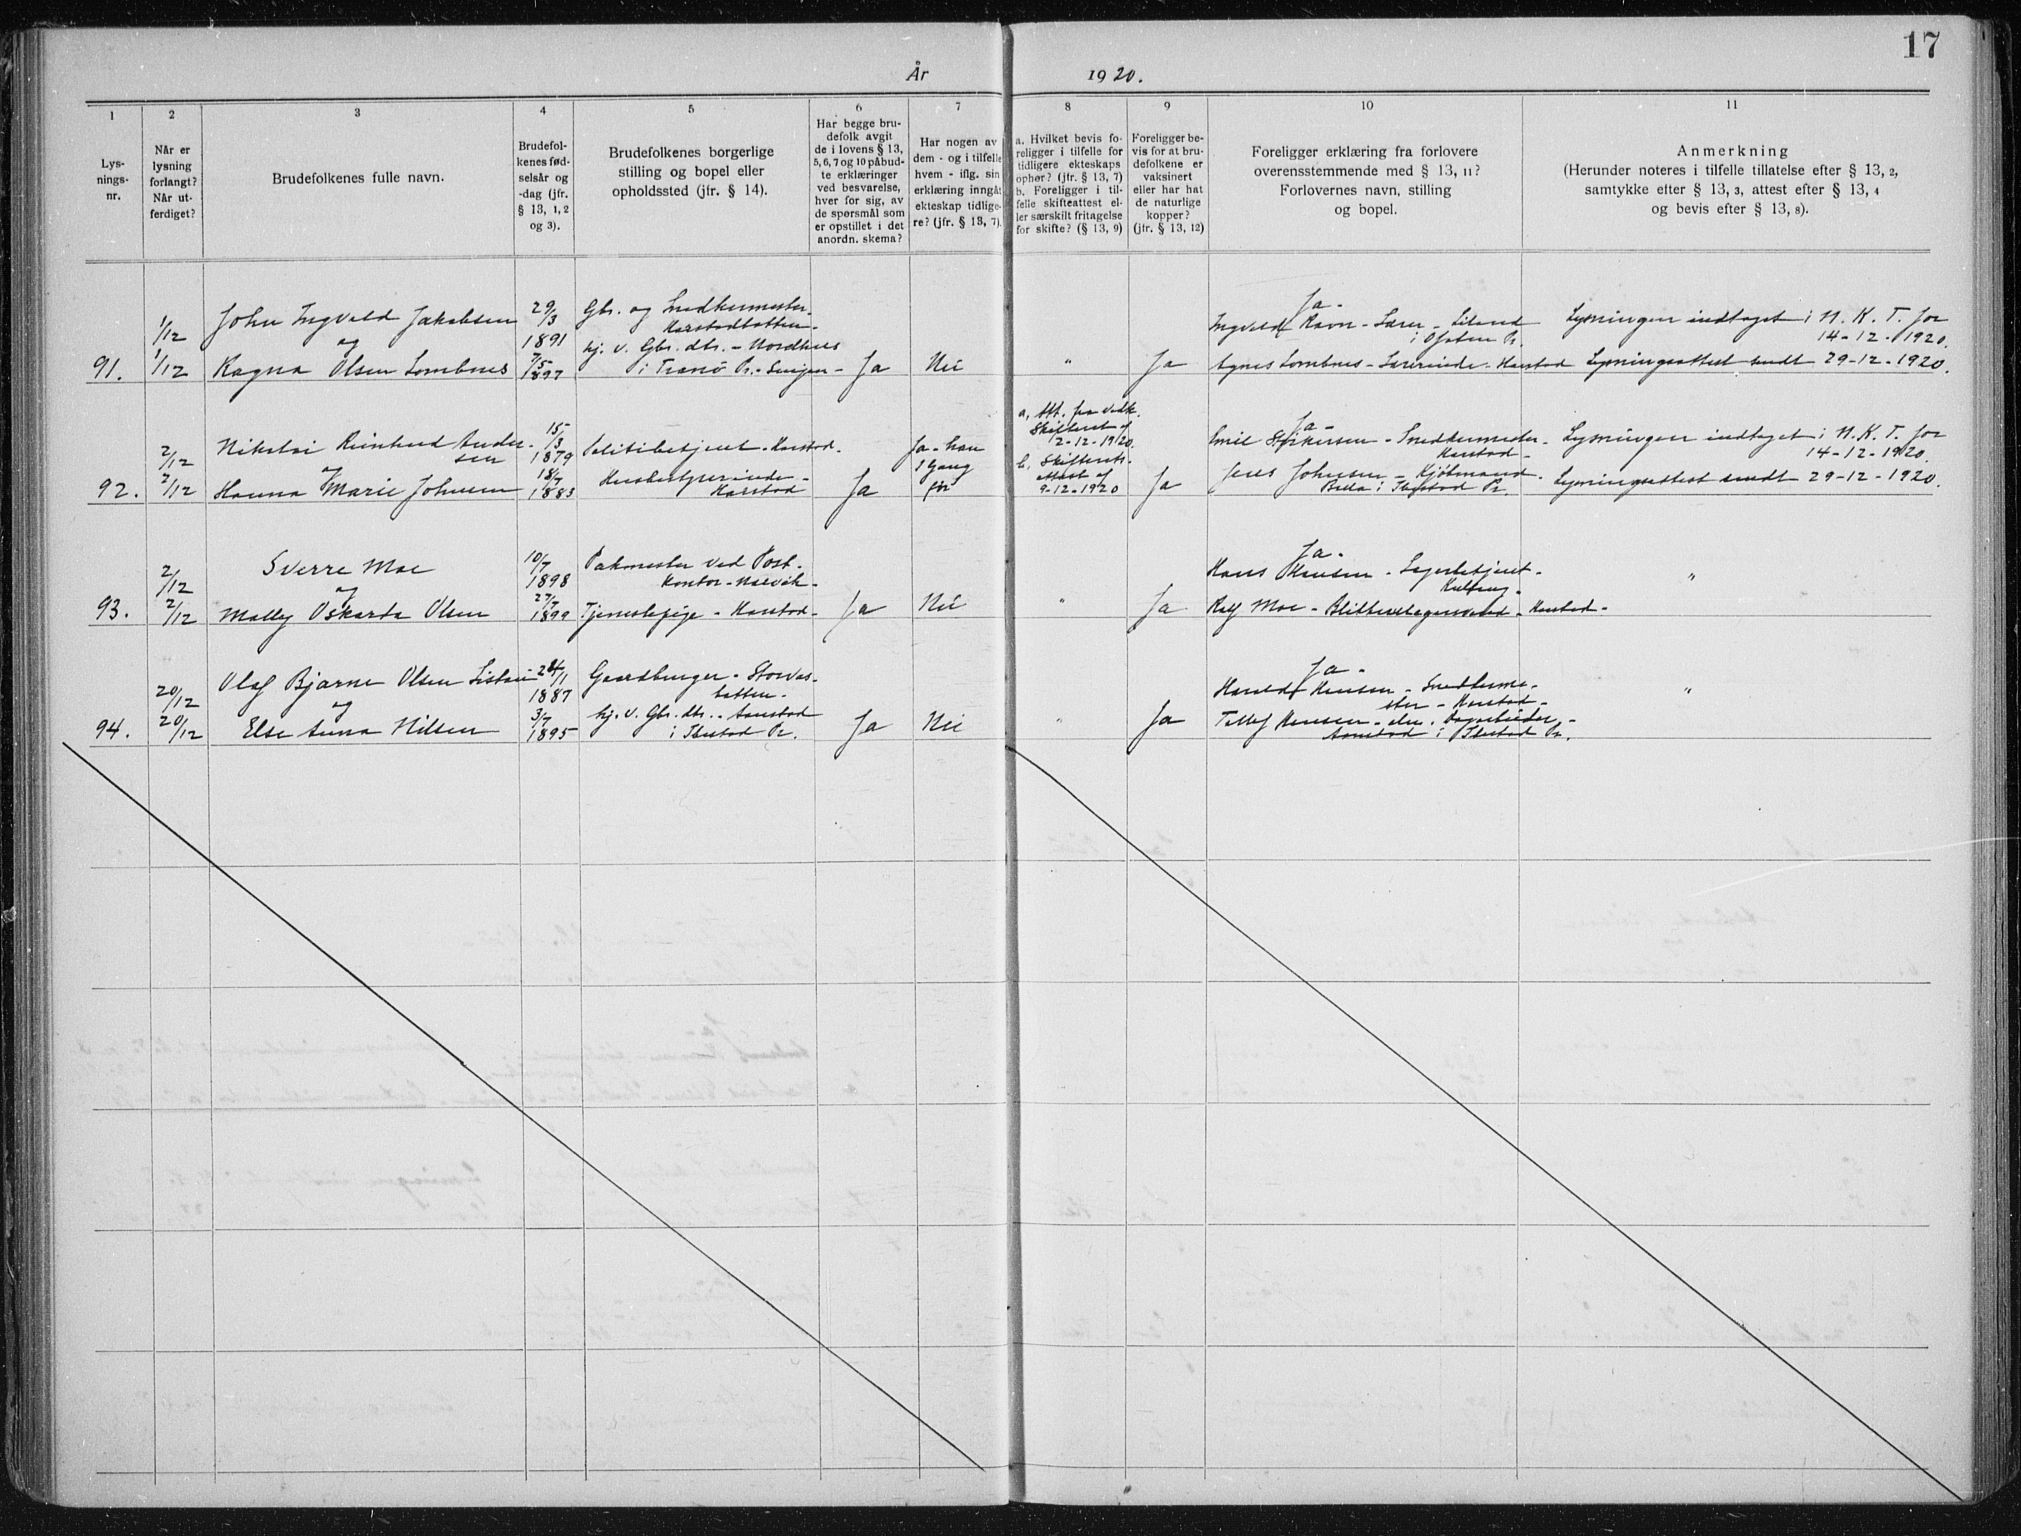 17
År 1920.
1 2 3 4 5 6 7 8 9 10 11
Lys-
nings-
nr.
Når er
lysning
forlangt?
Når ut-
ferdiget?
Brudefolkenes fulle navn.
Brudefol-
kenes fød-
selsår og
-dag (jfr.
§ 13, 1, 2
og 3).
Brudefolkenes borgerlige
stilling og bopel eller
opholdssted (jfr. § 14).
Har begge bru-
defolk avgit
de i lovens § 13,
5, 6, 7 og 10 påbud-
te erklæringer
ved besvarelse,
hver for sig, av
de spørsmål som
er opstillet i det
anordn. skema?
Har nogen av
dem - og i tilfelle
hvem - iflg. sin
erklæring inngåt
ekteskap tidlige-
re? (jfr. § 13, 7).
a. Hvilket bevis fo-
religger i tilfelle for
tidligere ekteskaps
ophør? (jfr. § 13, 7)
b. Foreligger i til-
felle skifteattest el-
ler særskilt fritagelse
for skifte? (§ 13, 9)
Foreligger be-
vis for at bru-
defolkene er
vaksinert
eller har hat
de naturlige
kopper?
(jfr. § 13, 12)
Foreligger erklæring fra forlovere
overensstemmende med § 13, 11?
Forlovernes navn, stilling
og bopel.
Anmerkning
(Herunder noteres i tilfelle tillatelse efter § 13, 2,
samtykke efter § 13, 3, attest efter § 13, 4
og bevis efter § 13, 8).
91.
1/12
1/12
John Ingvald Jakobsen
og
Ragna Olsen Lombnes
29/3
1891
7/5
1897
Gbr. og Snedkermester
Harstadbotten -
hj. v. Gbr. dtr. - Nordnes
i Tranø Pr. - Senjen -
Ja
Nei
"
Ja
Ja -
Ingvald Ravn - Lærer - Liland
i Ofoten Pr.
Agnes Lombnes - Lærerinde - Harstad
Lysningen indtaget i N. K. T. for
14-12-1920.
Lysningsattest sendt 29-12-1920.
92.
2/12
2/12
Nikolai Reinhard Ander-
sen
og
Hanna Marie Johnsen
15/3
1879
18/7
1883
Politibetjent - Harstad.
Husbestyrerinde -
Harstad
Ja
Ja - han
1 Gang
før
a. Att. fra vedk.
Skifteret af
2-12-1920
b. Skifterets
attest af
9-12-1920
Ja
Ja -
Emil - Snedkermester -
Harstad -
Jens Johnsen - Kjøbmand
i Ibestad Pr
Lysningen indtaget i N. K. T. for
14-12-1920.
Lysningsattest sendt 29-12-1920.
93.
2/12
2/12
Sverre Moe
og
Mally Oskarda Olsen
10/7
1898
27/7
1899
Pakmester ved Post-
kontor - Narvik -
Tjenestepige - Harstad -
Ja
Nei
"
Ja
Ja -
Hans Hansen - Lagerbetjent -
Ralf Moe - Blikkenslagersvend - Harstad -
"
94.
20/12
20/12
Olaf Bjarne Olsen
og
Else Anna Nilsen
24/1
1887
3/7
1895
Gaardbruger - Storvas-
botten -
hj. v. Gbr. dtr. - Aanstad
i Ibestad Pr.
Ja
Nei
"
Ja
Ja -
Harald Hansen - Snedkerme-
ster - Harstad -
Tellef Hansen - -
Aanstad i Ibestad Pr.
"